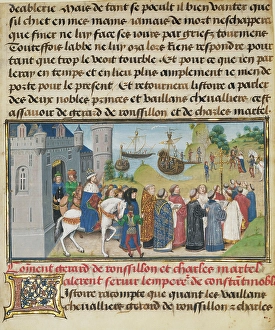 decablerie. Mais de tant se peult il bien vanter que
sil chiet en mes mains jamais de mort neschappera
que finer ne luy face ses jours par griefz tourmens
Touteffois labbe ne luy oza lors respondre pour
tant quil le veoit tourble. Et pour ce que len par
lera en temps et en lieu plus amplement je men de
porte pour le present. Et retournera listoire a parler
des deux nobles princes et vaillans chevalliers cest
assavoir de gerard de roussillon et de charles martel
Coment gerard de roussillon et charles martel
alerent servir lempere de constantinoble
Listoire racompte que quant les vaillans
chevalliers gerard de roussillon et charles